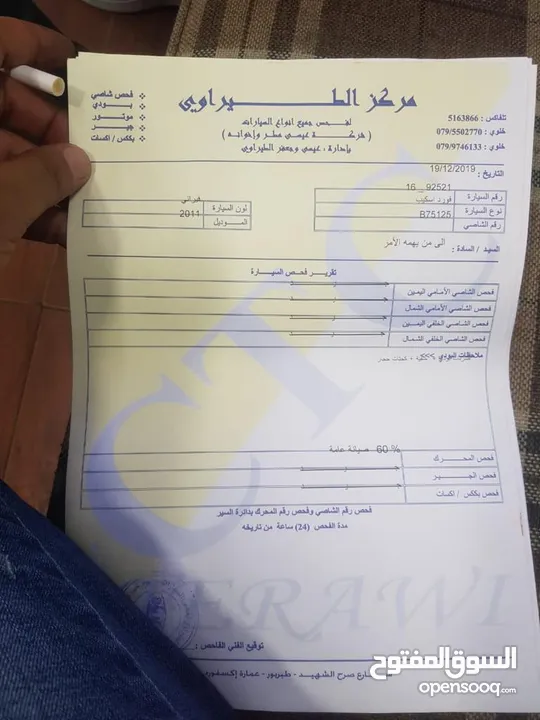 مركز الطيراوي
لفحص جميع انواع السيارات
( شركة عيسى مطر واخوانه )
بإدارة ، عيسى وجعفر الطيراوي
تلفاكس : 5163866
خلوي : 079/5502770
خلوي : 079/9746133
فحص شاصي
بودي
موتور
جير
بككس / اكسات
التاريخ : 19/12/2019
رقم السيارة 92521 _ 16
نوع السيارة فورد اسكيب
رقم الشاصي B75125
لون السيارة فيراني
الموديل 2011
السيد / السادة : الى من يهمه الأمر
تقرير فحص السيارة
فحص الشاصي الأمامي اليمين
فحص الشاصي الأمامي الشمال
فحص الشاصي الخلفي اليمين
فحص الشاصي الخلفي الشمال
ملاحظات البودي
فحص المحرك 60 % صيانة عامة
فحص الجير
فحص بككس / اكسات
فحص رقم الشاصي وفحص رقم المحرك بدائرة السير
مدة الفحص (24) ساعة من تاريخه
CTC
ERAWI
توقيع الفني الفاحص :
شارع صرح الشهيد - طبربور - عمارة إكسفورد
السوق المفتوح
opensooq.com